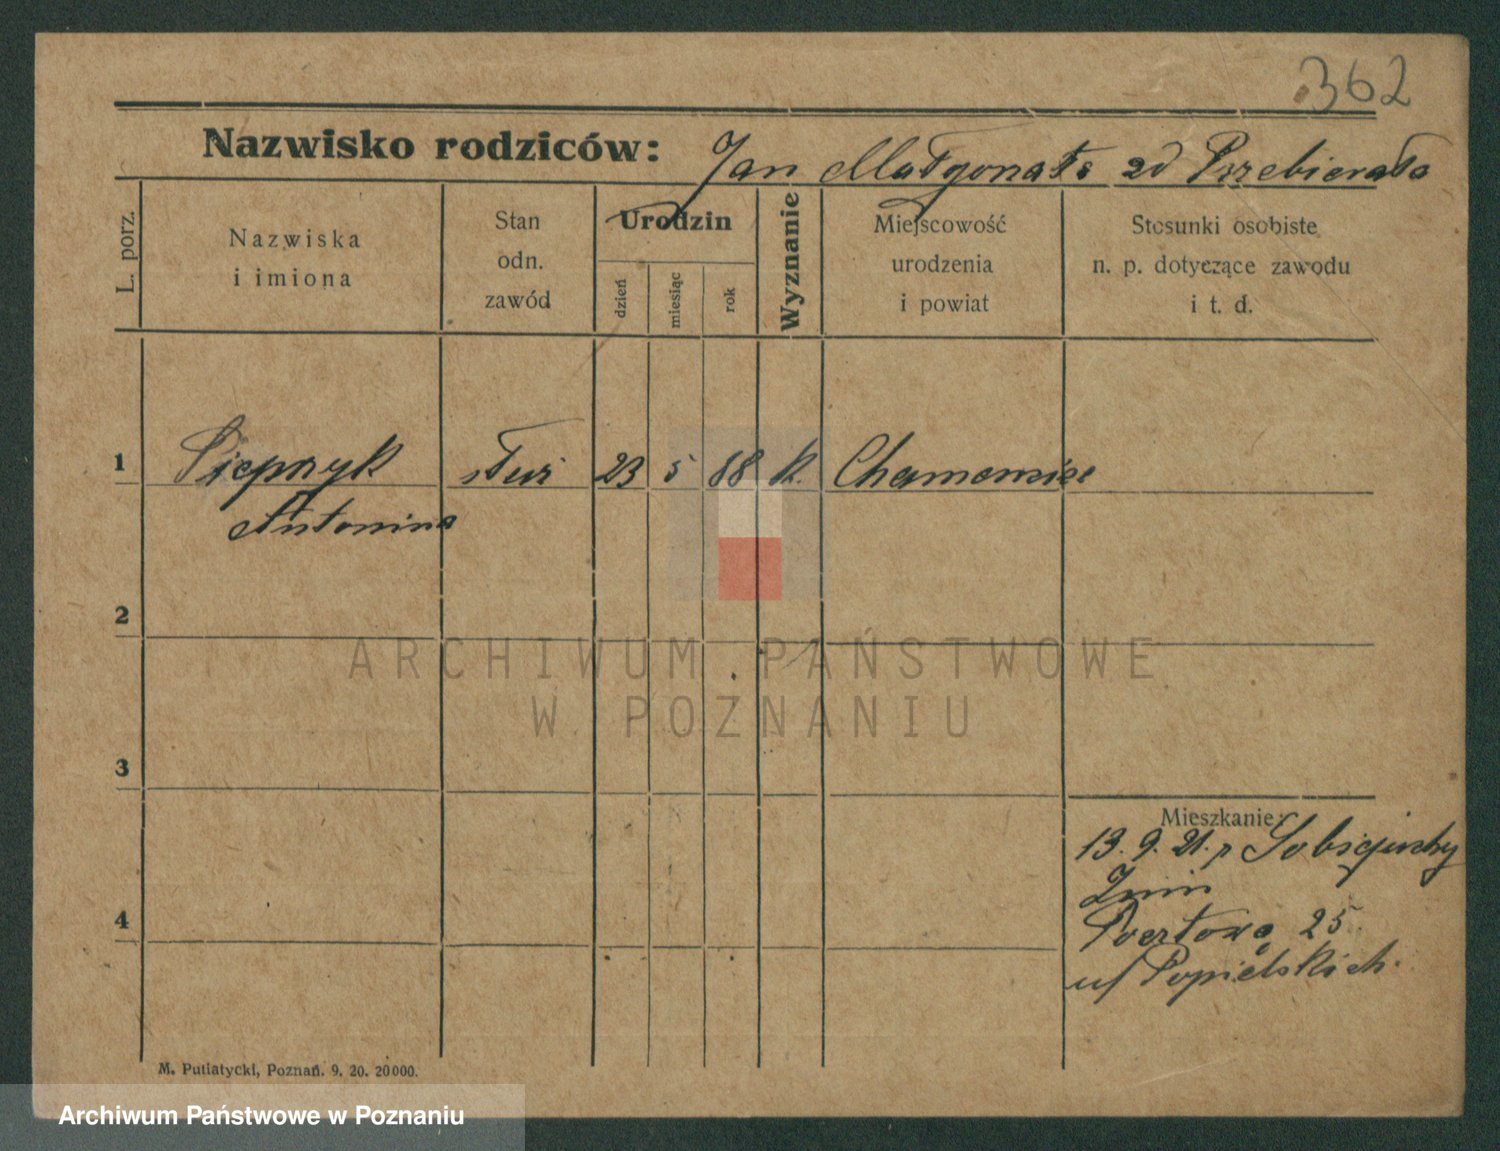 362
Nazwisko rodziców: Jan Małgorzata zd Przebierała
L. porz.
Nazwiska
i imiona
Stan
odn.
zawód
Urodzin
dzień
miesiąc
rok
Wyznanie
Miejscowość
urodzenia
i powiat
Stosunki osobiste
n. p. dotyczące zawodu
i t. d.
1 Pieprzyk służ 23 5 88 k.
Antonina
2
3
4
ARCHIWUM PAŃSTWOWE
W POZNANIU
Mieszkanie:
13. 9. 21.
Żnin
Pocztowa 25
u/ Popielskich.
M. Putiatycki, Poznań. 9. 20. 20000.
Archiwum Państwowe w Poznaniu